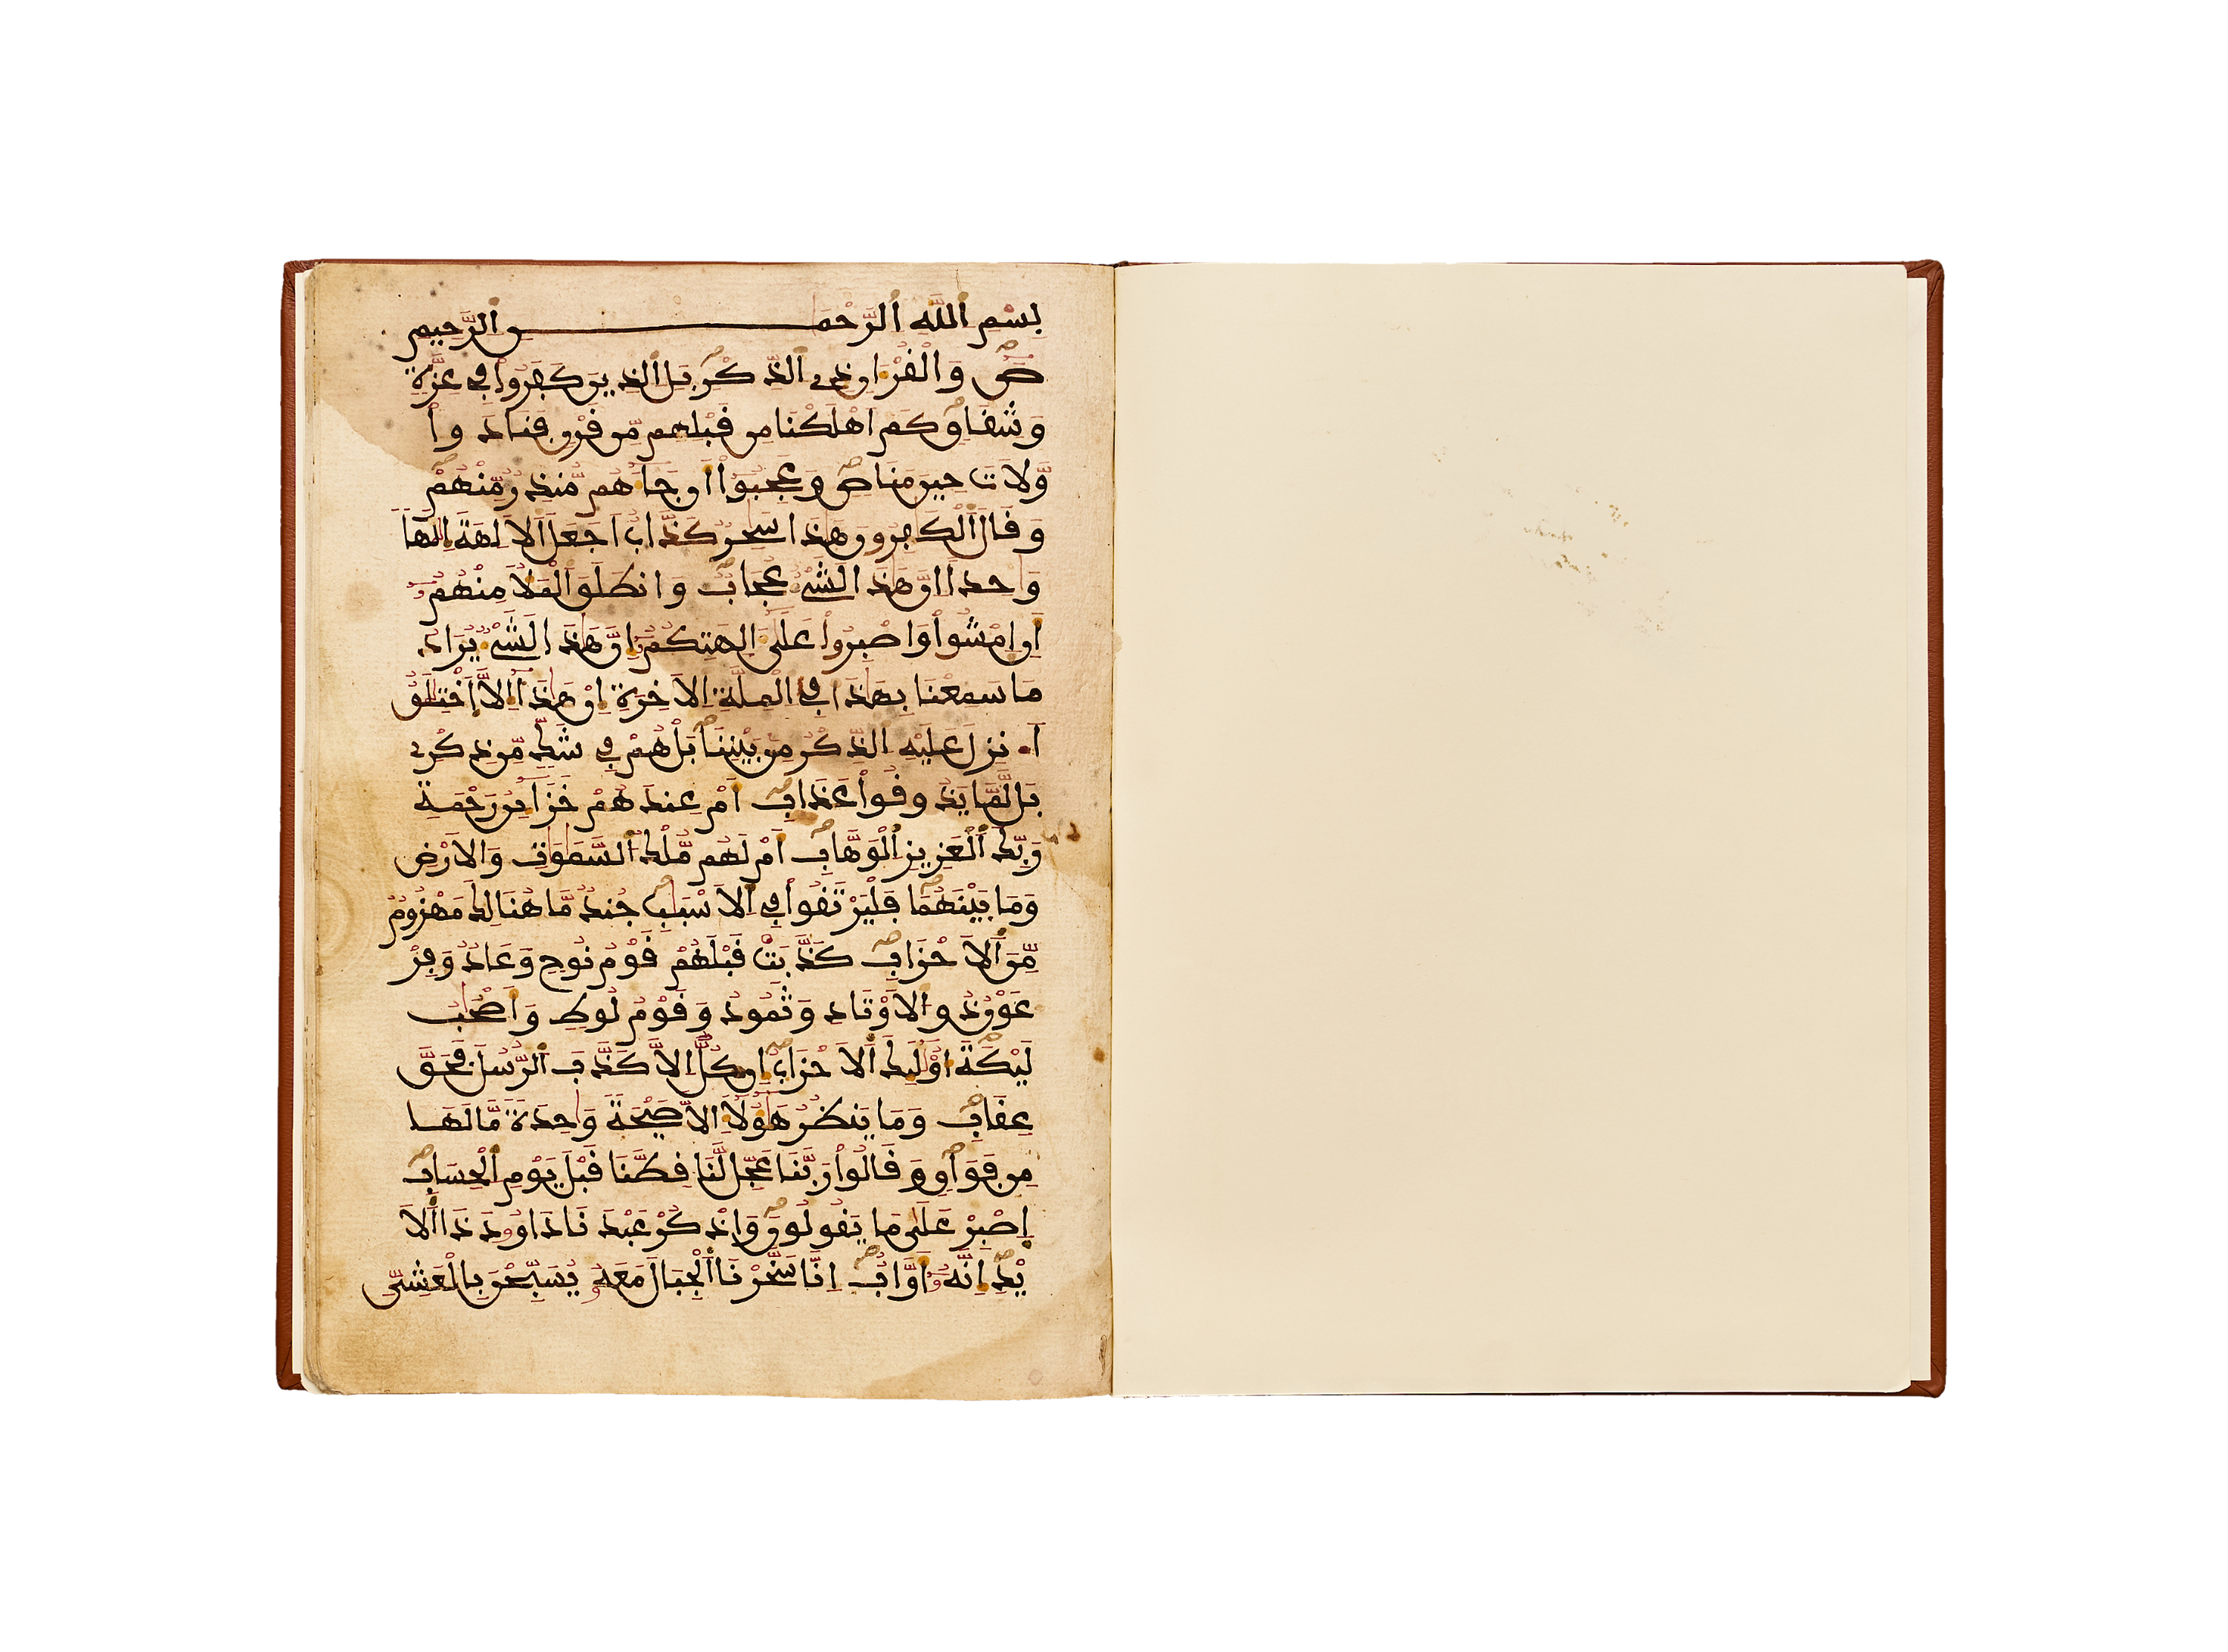 بِسْمِ اللَّهِ الرَّحْمَٰنِ الرَّحِيمِ
صٓ وَالْقُرْءَانِ ذِى الذِّكْرِ بَلِ الذِينَ كَفَرُوا فِى عِزَّةٍ
وَشِقَاقٍ كَمَ اهْلَكْنَا مِن قَبْلِهِم مِّن قَرْنٍ فَنَادَوا
وَّلَاتَ حِينَ مَنَاصٍ وَعَجِبُوا أَن جَاءَهُم مُّنذِرٌ مِّنْهُمْ
وَقَالَ الْكَٰفِرُونَ هَٰذَا سَٰحِرٌ كَذَّابٌ اَجَعَلَ الَالِهَةَ إِلَٰهًا
وَٰحِدًا اِنَّ هَٰذَا لَشَىْءٌ عُجَابٌ وَانطَلَقَ الْمَلَأُ مِنْهُمُ
أَنِ امْشُوا وَاصْبِرُوا عَلَىٰ ءَالِهَتِكُمُ إِنَّ هَٰذَا لَشَىْءٌ يُرَادُ
مَا سَمِعْنَا بِهَٰذَا فِى الْمِلَّةِ الَاخِرَةِ إِنْ هَٰذَا إِلَّا اَخْتِلَٰقٌ
أَ۟نزِلَ عَلَيْهِ الذِّكْرُ مِن بَيْنِنَا بَلْ هُمْ فِى شَكٍّ مِّن ذِكْرِى
بَل لَّمَّا يَذُوقُوا عَذَابِ أَمْ عِندَهُمْ خَزَائِنُ رَحْمَةِ
رَبِّكَ الْعَزِيزِ الْوَهَّابِ أَمْ لَهُم مُّلْكُ السَّمَٰوَٰتِ وَالَارْضِ
وَمَا بَيْنَهُمَا فَلْيَرْتَقُوا فِى الَاسْبَٰبِ جُندٌ مَّا هُنَالِكَ مَهْزُومٌ
مِّنَ الَاحْزَابِ كَذَّبَتْ قَبْلَهُمْ قَوْمُ نُوحٍ وَعَادٌ وَفِرْ
عَوْنُ ذُو الَاوْتَادِ وَثَمُودُ وَقَوْمُ لُوطٍ وَأَصْحَٰبُ
لَيْكَةَ أُوْلَٰئِكَ الَاحْزَابُ إِن كُلٌّ إِلَّا كَذَّبَ الرُّسُلَ فَحَقَّ
عِقَابِ وَمَا يَنظُرُ هَٰؤُلَاءِ الَّا صَيْحَةً وَٰحِدَةً مَّا لَهَا
مِن فَوَاقٍ وَقَالُوا رَبَّنَا عَجِّل لَّنَا قِطَّنَا قَبْلَ يَوْمِ الْحِسَابِ
اِصْبِرْ عَلَىٰ مَا يَقُولُونَ وَاذْكُرْ عَبْدَنَا دَاوُۥدَ ذَا الَا
يْدِ إِنَّهُۥ أَوَّابٌ اِنَّا سَخَّرْنَا الْجِبَالَ مَعَهُۥ يُسَبِّحْنَ بِالْعَشِىِّ